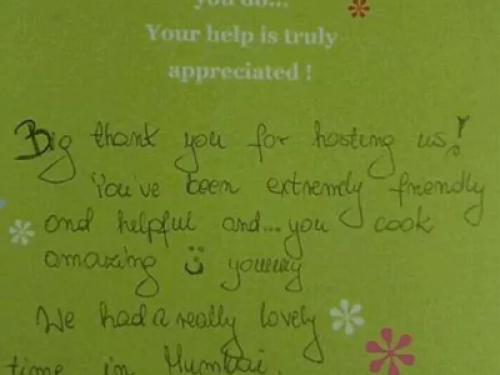 you do...
Your help is truly
appreciated !
Big thank you for hosting us!
You've been extremely friendly
and helpful and... you cook
amazing ü yammy
We had a really lovely
time in Mumbai.